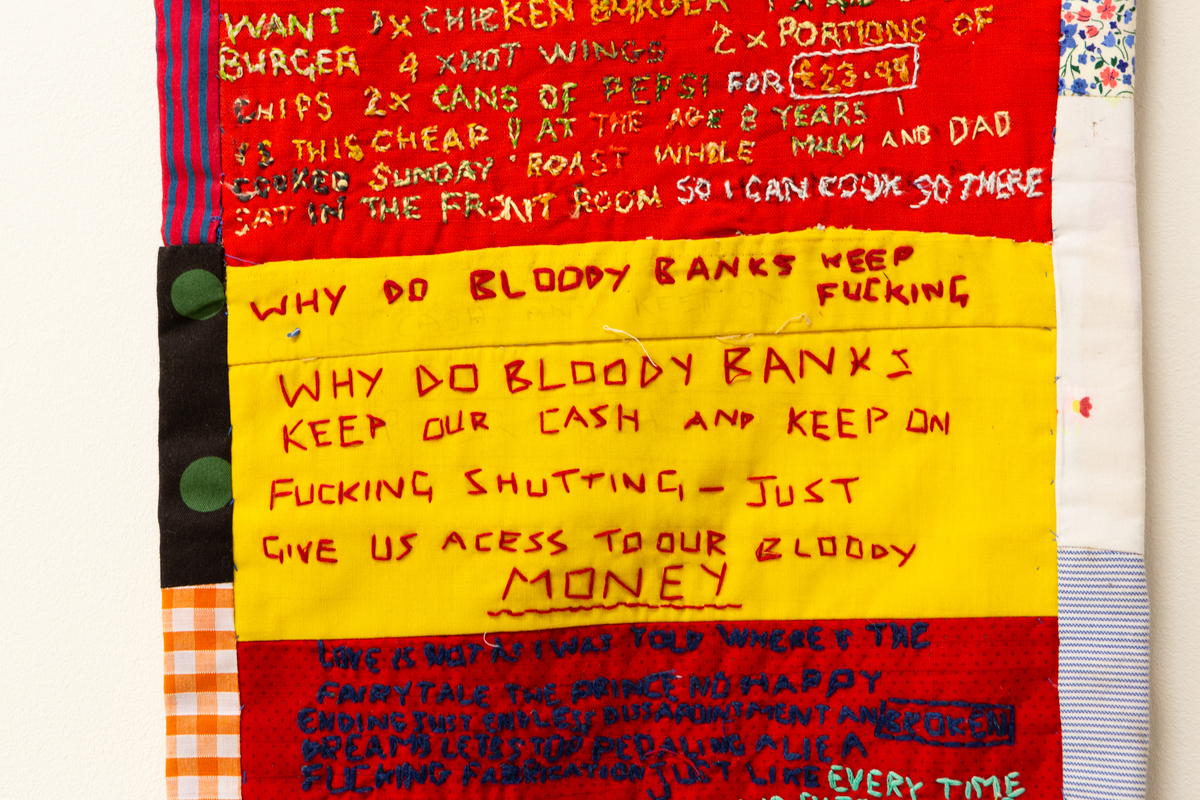 WANT 1X CHICKEN BURGER 1 X
BURGER 4 XHOT WINGS 2 x PORTIONS OF
CHIPS 2X CANS OF PEPSI FOR £23.99
IS THIS CHEAP AT THE AGE 8 YEARS I
COOKED SUNDAY ROAST WHILE MUM AND DAD
SAT IN THE FRONT ROOM SO I CAN COOK SO THERE
WHY DO BLOODY BANKS KEEP
FUCKING
WHY DO BLOODY BANKS
KEEP OUR CASH AND KEEP ON
FUCKING SHUTTING – JUST
GIVE US ACESS TO OUR BLOODY
MONEY
LOVE IS NOT AS I WAS TOLD WHERE'S THE
FAIRYTALE THE PRINCE NO HAPPY
ENDING JUST ENDLESS DISSAPOINTMENT AN BROKEN
DREAMS LETS STOP PEDALING A LIE A
FUCKING FABRICATION JUST LIKE EVERY TIME